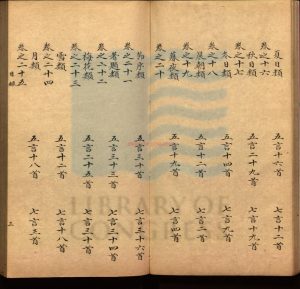 夏日類 五言十六首 七言十二首
卷之十六
秋日類 五言二十九首 七言十九首
卷之十七
冬日類 五言十九首 七言九首
卷之十八
晨朝類 五言十八首 七言二首
卷之十九
暮夜類 五言 首 七言四首
卷之二十
節序類 五言三十首 七言三十六首
卷之二十一
着題類 五言三十首 七言三十四首
卷之二十二
梅花類 五言二十五首 七言三十首
卷之二十三
雪類 五言十二首 七言十八首
卷之二十四
月類 五言十八首 七言三首
卷之二十五
目錄 三
LIBRARY OF
CONGRESS